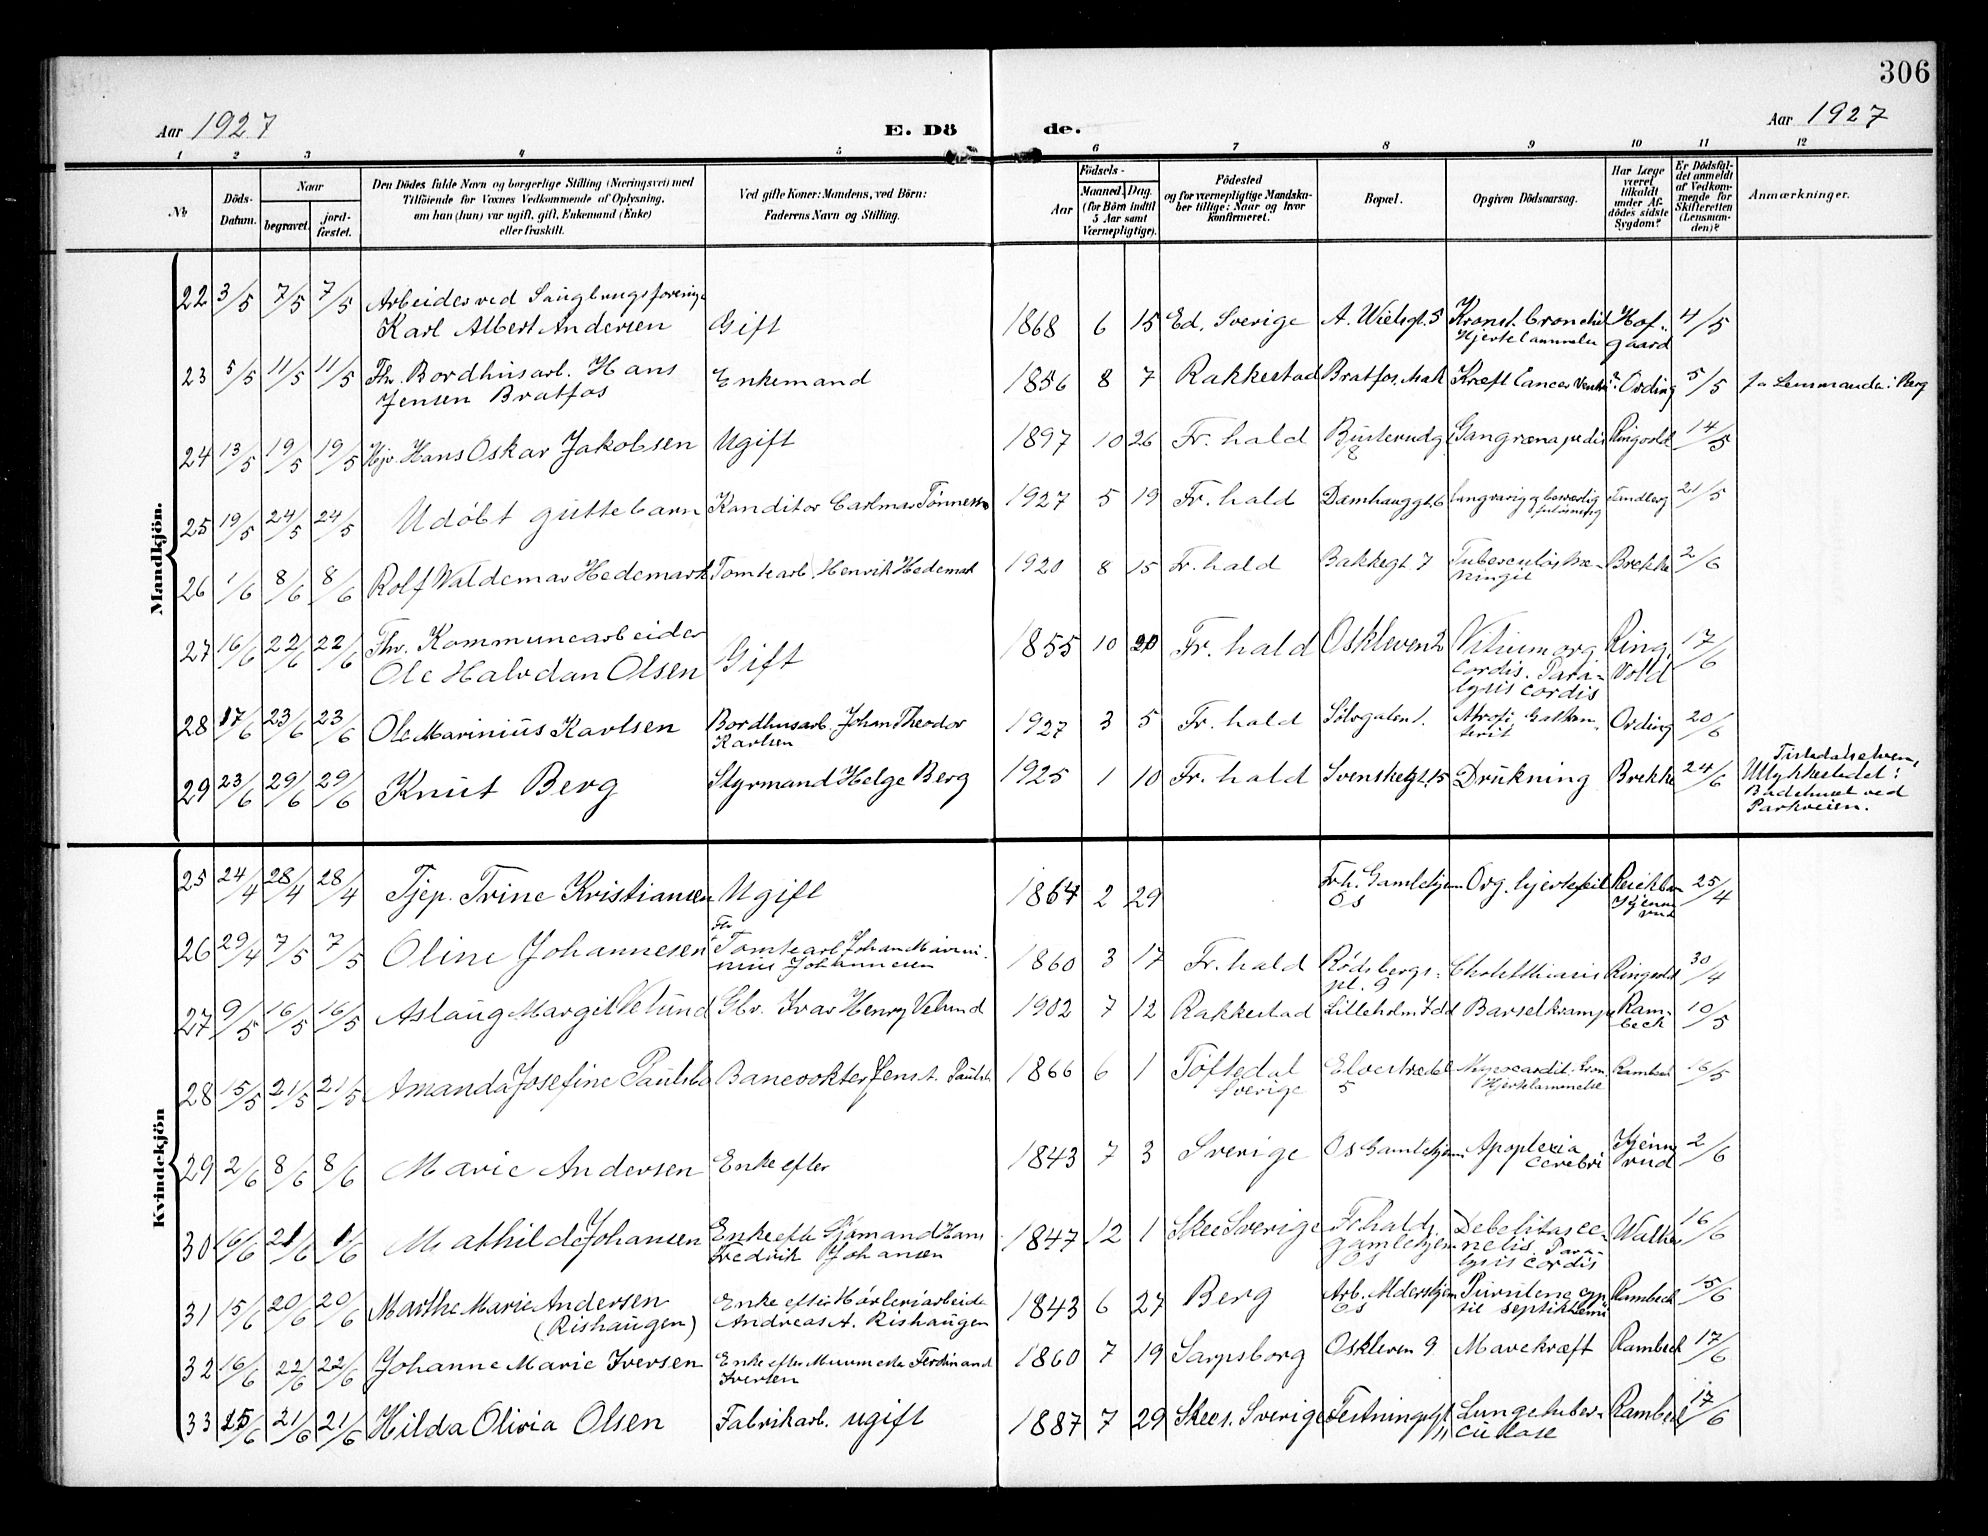 306
Aar 1927
E. Dö
de.
Aar 1927
1 2 3 4 5 6 7 8 9 10 11 12
No
Döds-Datum.
Naar
begravet.
jord-fæstet.
Den Dödes fulde Navn og borgerlige Stilling (Næringsvei) med
Tilföiende for Voxnes Vedkommende af Oplysning,
om han (hun) var ugift, gift, Enkemand (Enke)
eller fraskilt.
Ved gifte Koner: Mandens, ved Börn:
Faderens Navn og Stilling.
Födsels-
Aar
Maaned. Dag.
(for Börn indtil
5 Aar samt
Værnepligtige).
Födested
og for værnepligtige Mandska-
ber tillige: Naar og hvor
konfirmeret.
Bopæl.
Opgiven Dödsaarsag.
Har Læge
været
tilkaldt
under Af-
dödes sidste
Sygdom?
Er Dödsfal-
det anmeldt
af Vedkom-
mende for
Skifteretten
(Lensman-
den)?
Anmærkninger.
Mandkjön.
22 3/5 7/5 7/5 Arbeider ved
Karl Albert Andersen Gift 1868 6 15 Ed, Sverige A. Wielsgt. 5 Kronsk bronchit Hof- 4/5
gaard
23 5/5 11/5 11/5 Fhv. Bordhusarb. Hans Enkemand 1856 8 7 Rakkestad Bratfos, Mak Kræft Cancer Ording 5/5 Ja Lensmanden i Berg
Jensen Bratfos
24 13/5 19/5 19/5 Hans Oskar Jakobsen Ugift 1897 10 26 Fr. hald Gangræna pedis Ringvold 14/5
25 19/5 24/5 24/5 Udöbt guttebarn Konditor Carlmar Tønnesen 1927 5 19 Fr. hald Damhauggt. 6 langvarig og besværlig Tandberg 21/5
26 1/6 8/6 8/6 Rolf Valdemar Hedemark Tomtearb. Henrik Hedemark 1920 8 15 Fr. hald Bakkegt 7 Tuberculös me- Brekke 2/6
ningit
27 16/6 22/6 22/6 Fhv. Kommunearbeider
Ole Halvdan Olsen Gift 1855 10 20 Fr. hald Oskleven 2 Vitium org. Ring. 17/6
cordis. Para- Vold
lysis cordis
28 17/6 23/6 23/6 Ole Marinius Karlsen Bordhusarb. Johan Theodor 1927 3 5 Fr. hald Sölvgaten 1. Atrofi, Gastroen- Ording 20/6
Karlsen terit
29 23/6 29/6 29/6 Knut Berg Styrmand Helge Berg 1925 1 10 Fr. hald Svenskegt. 15 Drukning Brekke 24/6 Tistedalselven,
Ulykkestedet:
Badehuset ved
Parkveien.
Kvindekjön
25 24/4 28/4 28/4 Tjep. Trine Kristiansen Ugift 1864 2 29 Frh. Gamlehjem Org. hjertefeil 25/4
Os
26 29/4 7/5 7/5 Oline Johannesen Tomtearb Johan Mari-
nius Johannesen 1860 3 17 Fr. hald Rödsbergs- Ringvold 30/4
pl. 9
27 9/5 16/5 16/5 Aslaug Margit Velund Gbr. Ivar Henry Velund 1902 7 12 Rakkestad Lilleholm Idd Barselkrampe Ram- 10/5
beck
28 15/5 21/5 21/5 Amanda Josefine Paulsbo Banevokter Jens A. Paulsbo 1866 6 1 Töftedal Elvestredet Myocardit. Kron. Rambeck 16/5
Sverige 5 Hjertelammelse
29 2/6 8/6 8/6 Marie Andersen Enke efter 1843 7 3 Sverige Os Gamlehjem Apoplexia Kjenne 2/6
cerebri rud
30 16/6 21/6 21/6 Mathilde Johansen Enke efter Sjömand Hans 1847 12 1 Skee Sverige Fr.halds Debelitas ce- Walker 16/6
Fredrik Johansen gamlehjem nelis. Para-
Os lysis cordis
31 15/6 20/6 20/6 Marthe Marie Andersen Enke efter Mörleriarbeide 1843 6 27 Berg Arb. Aldershjem Rambeck 15/6
(Rishaugen) Andreas A. Rishaugen Os
32 16/6 22/6 22/6 Johanne Marie Iversen Enke efter Murmester Ferdinand 1860 7 19 Sarpsborg Oskleven 9 Mavekræft Rambeck 17/6
Iversen
33 15/6 21/6 21/6 Hilda Olivia Olsen Fabrikarb. ugift 1887 7 29 Skee s. Sverige Festningsgt Lungetuber- Rambeck 17/6
11 culose